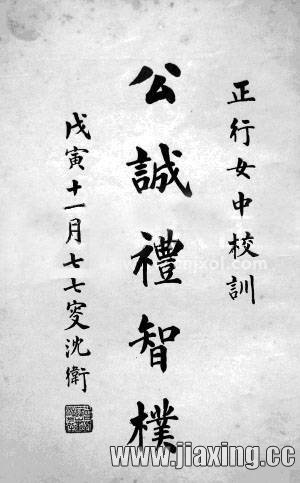 正行女中校訓
公誠禮智樸
戊寅十一月七七叟沈衛
www.jiaxing.cc